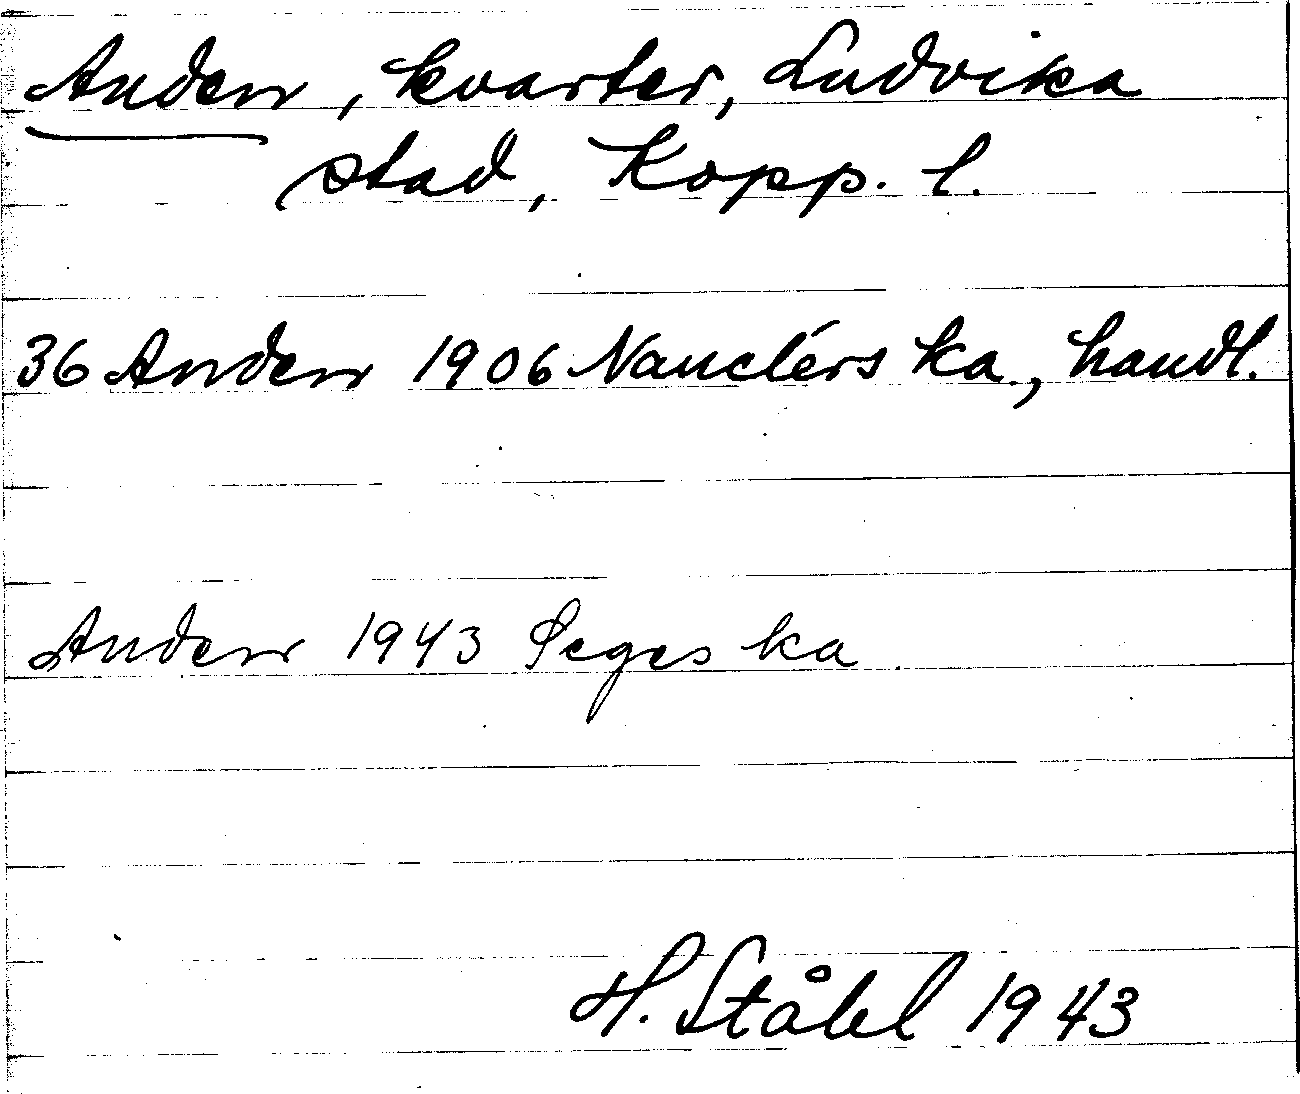 Anden, kvarter, Ludvika
stad, Kopp. l.
36 Anden 1906 Nauclérs ka., handl.
Anden 1943 Seges ka
H. Ståhl 1943